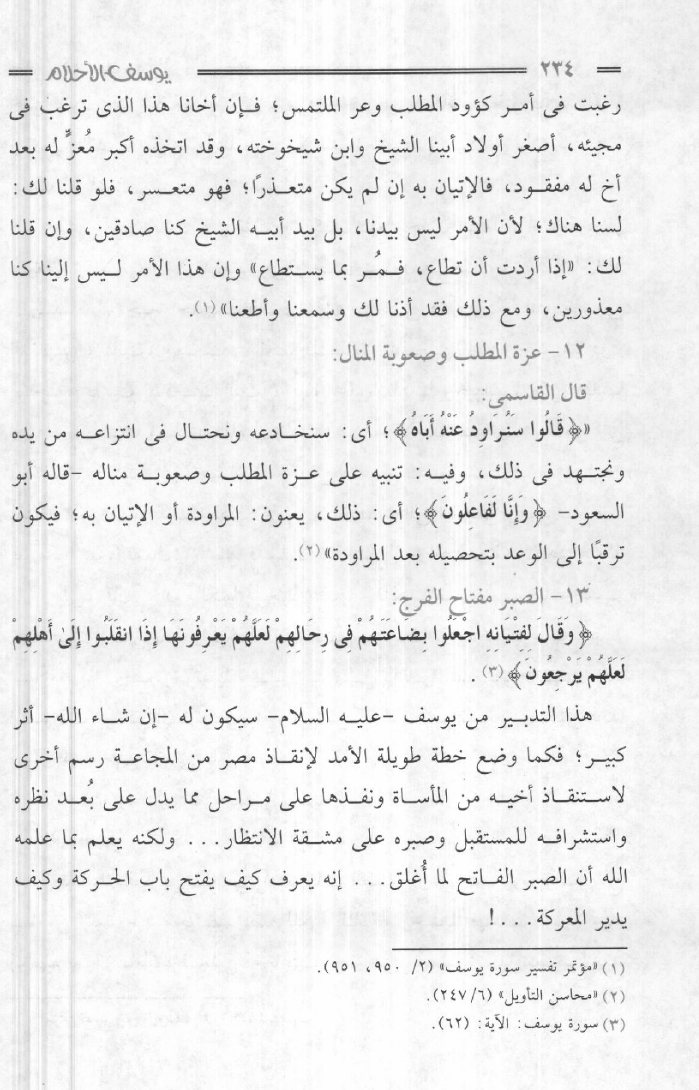 ٢٣٤ يوسف الأحلام
رغبت فى أمر كؤود المطلب وعر الملتمس؛ فإن أخانا هذا الذى ترغب فى
مجيئه، أصغر أولاد أبينا الشيخ وابن شيخوخته، وقد اتخذه أكبر مُعزٍّ له بعد
أخ له مفقود، فالإتيان به إن لم يكن متعذرًا؛ فهو متعسر، فلو قلنا لك:
لسنا هناك؛ لأن الأمر ليس بيدنا، بل بيد أبيه الشيخ كنا صادقين، وإن قلنا
لك: «إذا أردت أن تطاع، فمُر بما يستطاع» وإن هذا الأمر ليس إلينا كنا
معذورين، ومع ذلك فقد أذنا لك وسمعنا وأطعنا» (١).
١٢- عزة المطلب وصعوبة المنال:
قال القاسمى:
«﴿قَالُوا سَنُرَاوِدُ عَنْهُ أَبَاهُ﴾؛ أى: سنخادعه ونحتال فى انتزاعه من يده
ونجتهد فى ذلك، وفيه: تنبيه على عزة المطلب وصعوبة مناله -قاله أبو
السعود- ﴿وَإِنَّا لَفَاعِلُونَ﴾؛ أى: ذلك، يعنون: المراودة أو الإتيان به؛ فيكون
ترقبًا إلى الوعد بتحصيله بعد المراودة» (٢).
١٣- الصبر مفتاح الفرج:
﴿وَقَالَ لِفِتْيَانِهِ اجْعَلُوا بِضَاعَتَهُمْ فِى رِحَالِهِمْ لَعَلَّهُمْ يَعْرِفُونَهَا إِذَا انقَلَبُوا إِلَىٰ أَهْلِهِمْ
لَعَلَّهُمْ يَرْجِعُونَ﴾ (٣).
هذا التدبير من يوسف -عليه السلام- سيكون له -إن شاء الله- أثر
كبير؛ فكما وضع خطة طويلة الأمد لإنقاذ مصر من المجاعة رسم أخرى
لاستنقاذ أخيه من المأساة ونفذها على مراحل مما يدل على بُعد نظره
واستشرافه للمستقبل وصبره على مشقة الانتظار... ولكنه يعلم بما علمه
الله أن الصبر الفاتح لما أُغلق... إنه يعرف كيف يفتح باب الحركة وكيف
يدير المعركة...!
(١) «مؤتمر تفسير سورة يوسف» (٢/ ٩٥٠، ٩٥١).
(٢) «محاسن التأويل» (٦/٢٤٧).
(٣) سورة يوسف: الآية: (٦٢).